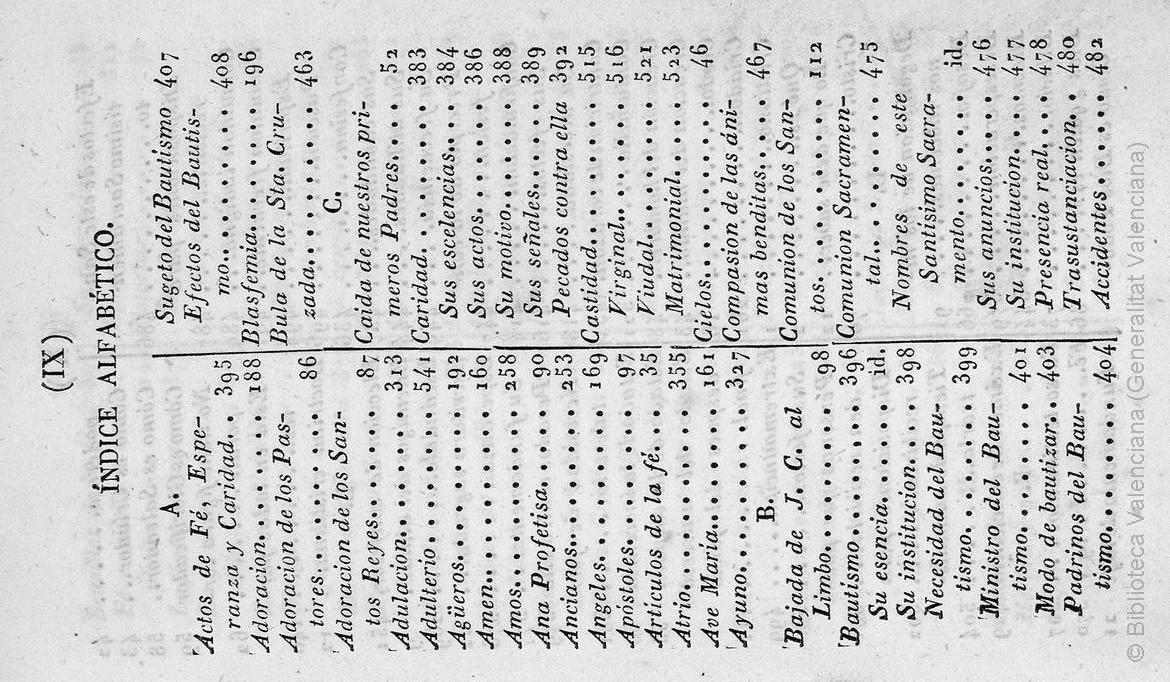 (IX)
ÍNDICE ALFABÉTICO.
A.
Actos de Fé, Espe-
ranza y Caridad.. 395
Adoracion........ 188
Adoracion de los Pas-
tores.......... 86
Adoracion de los San-
tos Reyes........ 87
Adulacion......... 313
Adulterio......... 541
Agüeros.......... 192
Amen............ 160
Amos............ 258
Ana Profetisa...... 90
Ancianos......... 253
Angeles.......... 169
Apóstoles......... 97
Artículos de la fé... 35
Atrio............ 355
Ave María........ 161
Ayuno........... 327
B.
Bajada de J. C. al
Limbo.......... 98
Bautismo......... 396
Su esencia....... id.
Su institucion..... 398
Necesidad del Bau-
tismo.......... 399
Ministro del Bau-
tismo.......... 401
Modo de bautizar.. 403
Padrinos del Bau-
tismo.......... 404
Sugeto del Bautismo 407
Efectos del Bautis-
mo............ 408
Blasfemia......... 196
Bula de la Sta. Cru-
zada........... 463
C.
Caida de nuestros pri-
meros Padres..... 52
Caridad.......... 383
Sus escelencias.... 384
Sus actos........ 386
Su motivo........ 388
Sus señales....... 389
Pecados contra ella 392
Castidad......... 515
Virginal......... 516
Viudal.......... 521
Matrimonial...... 523
Cielos........... 46
Compasion de las áni-
mas benditas..... 467
Comunion de los San-
tos............ 112
Comunion Sacramen-
tal............ 475
Nombres de este
Santísimo Sacra-
mento......... id.
Sus anuncios...... 476
Su institucion..... 477
Presencia real..... 478
Trasustanciacion... 480
Accidentes....... 482
© Biblioteca Valenciana (Generalitat Valenciana)